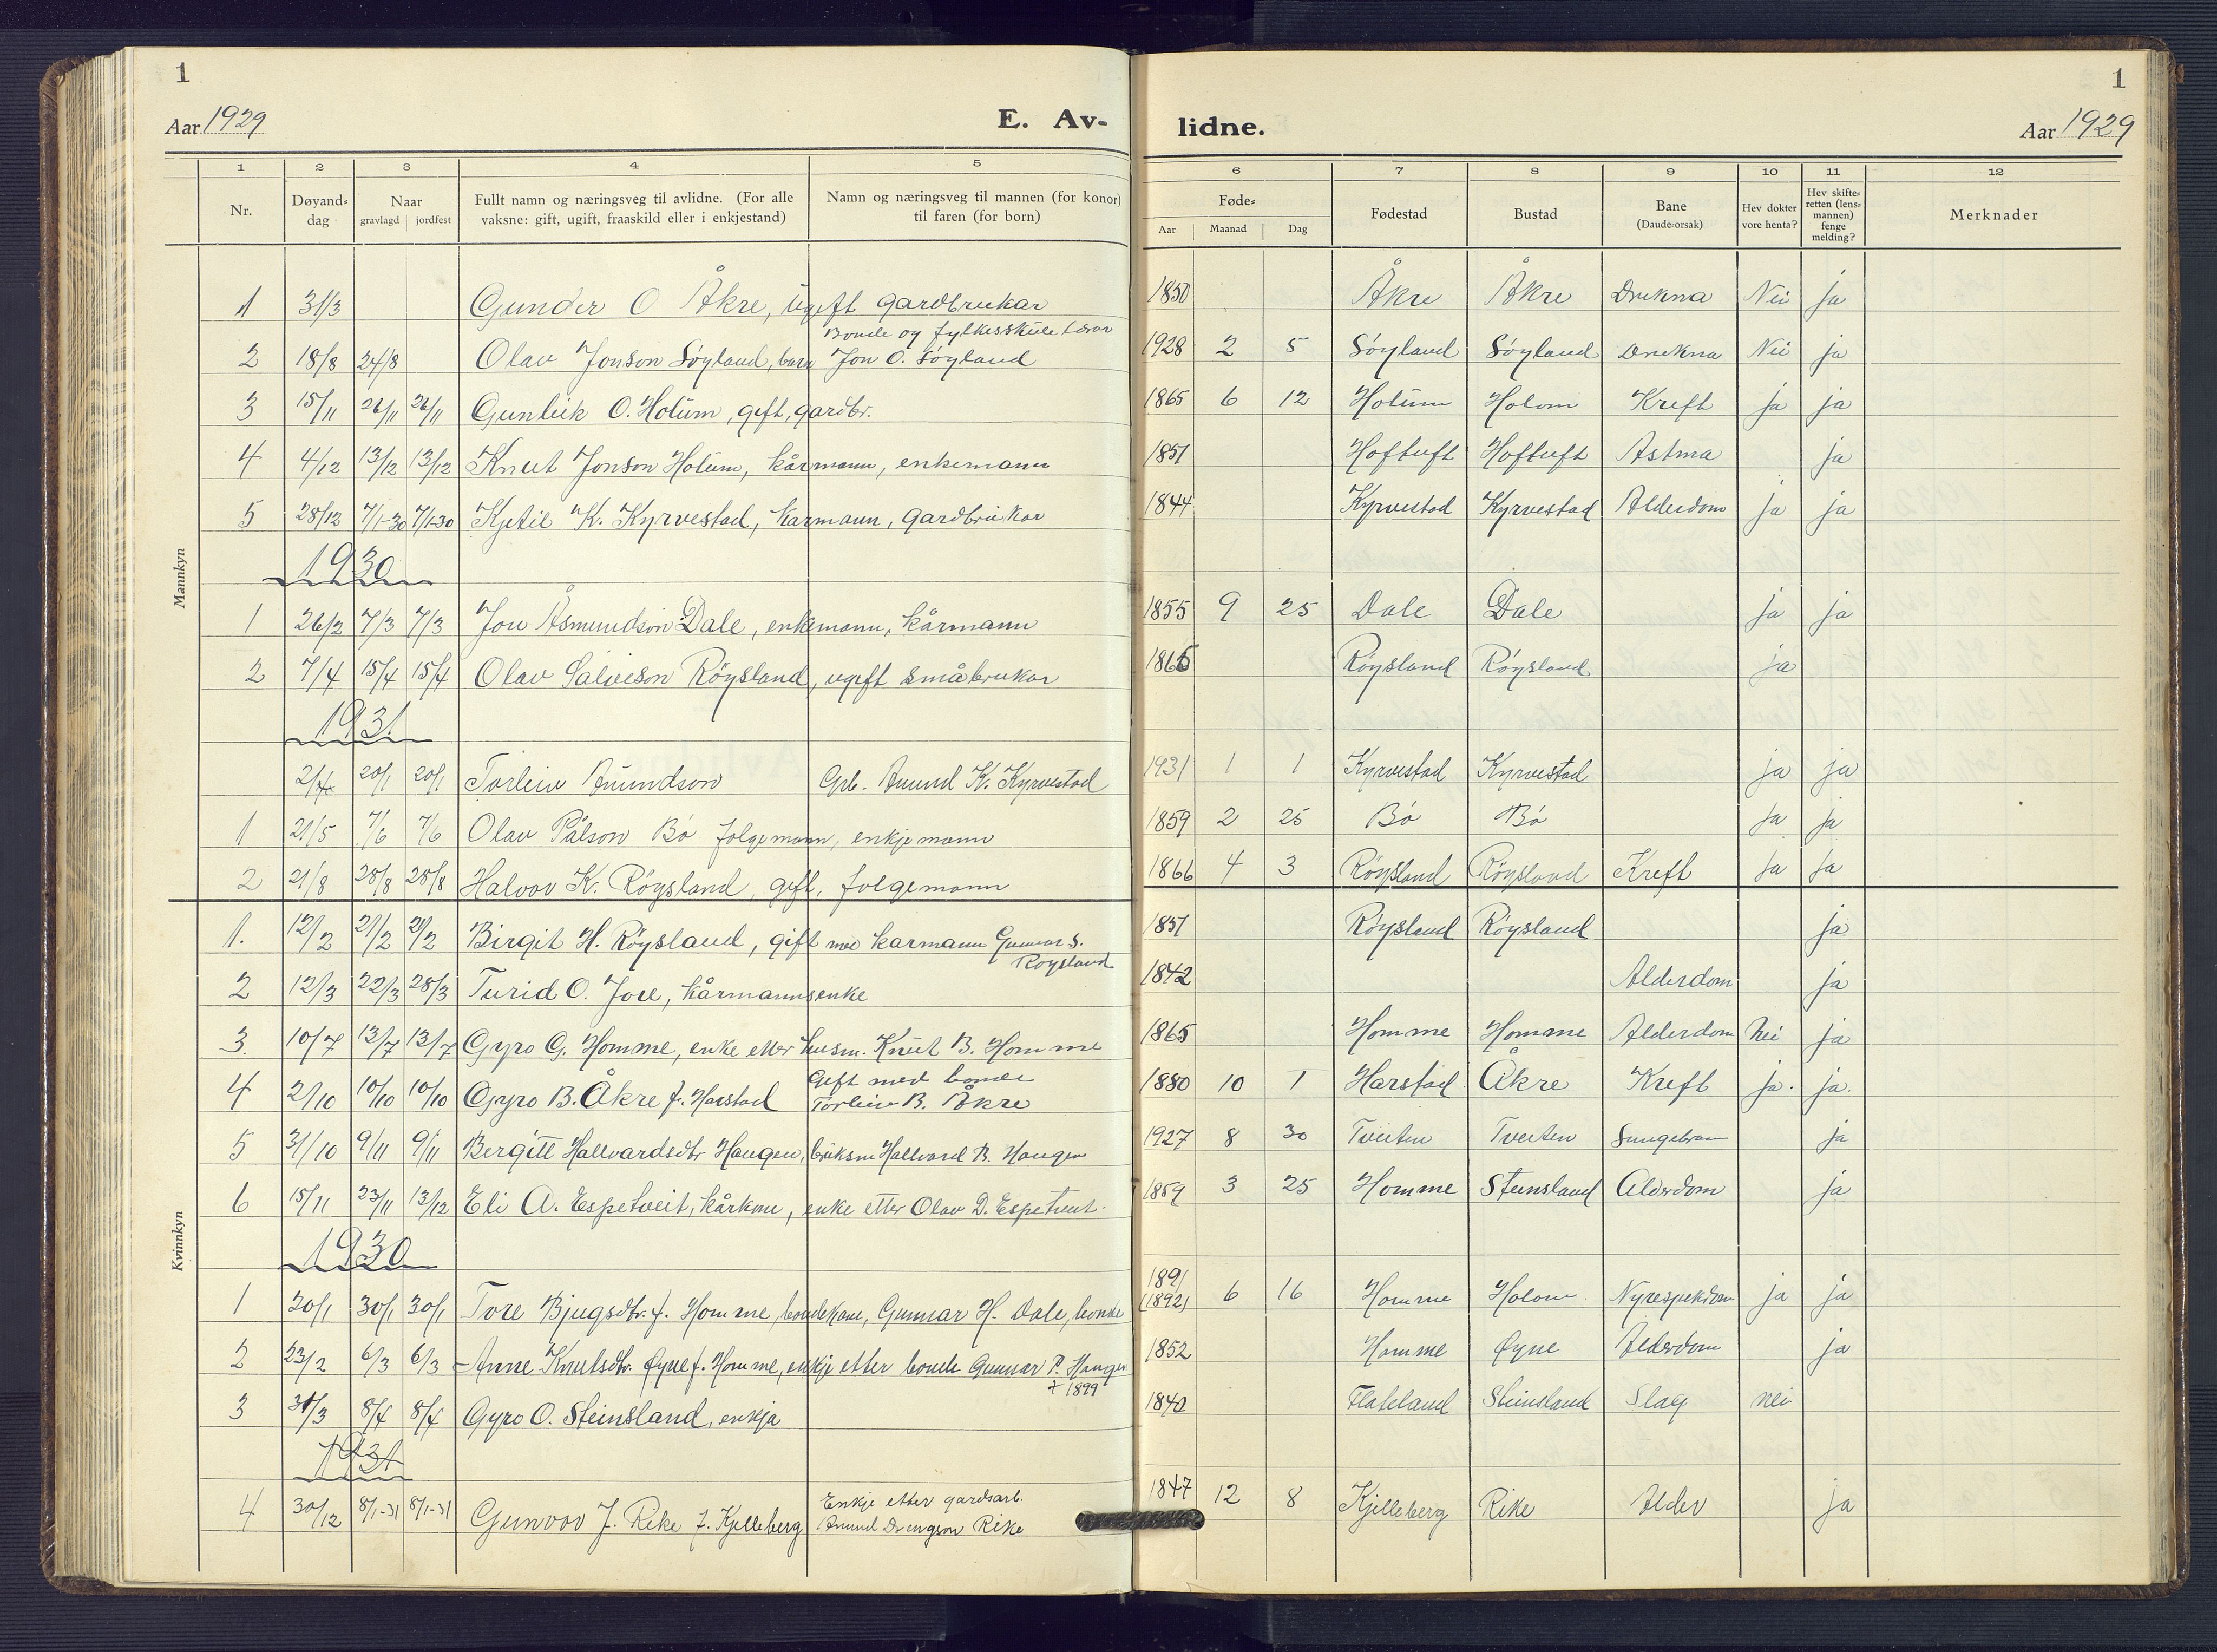 1
Aar 1929 E. Av-
1 2 3 4 5
Nr. Døyand-dag Naar gravlagd jordfest Fullt namn og næringsveg til avlidne. (For alle vaksne: gift, ugift, fraaskild eller i enkjestand) Namn og næringsveg til mannen (for konor) til faren (for born)
Mannkyn
1 31/3 Gunder O Åkre, ugift gardbrukar
Bonde og fylkesskule lærar
2 18/8 24/8 Olav Jonson Söyland, barn Jon O. Söyland
3 15/11 26/11 26/11 Gunleik O. Holum, gift, gardbr.
4 4/12 13/12 13/12 Knut Jonson Holum, kårmann, enkemann
5 28/12 7/1-30 7/1-30 Kjetil K. Kyrvestad, karmann, gardbrukar
1930
1 26/2 7/3 7/3 Jon Åsmundson Dale, enkemann, kårmann
2 7/4 15/4 15/4 Olav Salveson Röysland, ugift småbrukar
1931
20/1 20/1 Torleiv Aanundson Grb. Anund K. Kyrvestad
1 21/5 7/6 7/6 Olav Pålson Bö folgemann, enkjemann
2 21/8 28/8 28/8 Halvor K. Röysland, gift, folgemann
Kvinnkyn
1. 12/2 21/2 21/2 Birgit H. Röysland, gift med karmann Gunnar S.
Röysland
2 12/3 22/3 28/3 Turid O. Jore, kårmannsenke
3. 10/7 13/7 13/7 Gyro G. Homme, enke etter husm. Knut B. Homme
Gift med bonde
4 2/10 10/10 10/10 Gyro B. Åkre f. Harstad Torleiv B. Åkre
5 31/10 9/11 9/11 Bergitt Hallvardsdtr Haugen, bruksm Hallvard B. Haugen
6 15/11 23/11 13/12 Eli A. Espetveit, kårkone, enke etter Olav D. Espetveit.
1930
1 20/1 30/1 30/1 Tore Bjugsdtr. f. Homme, bondekone, Gunnar H. Dale, bonde
2 23/2 6/3 6/3 Anne Knutsdtr. Øyne f. Homme, enkje etter bonde Gunnar P. Haugen
† 1899
3 31/3 8/4 8/4 Gyro O. Steinsland, enkja
1931
Enkje etter gardsarb.
4 30/12 8/1-31 8/1-31 Gunvor J. Rike f. Kjelleberg Anund Drengson Rike
1
lidne. Aar 1929
6 7 8 9 10 11 12
Føde- Aar Maanad Dag Fødestad Bustad Bane (Daude-orsak) Hev dokter vore henta? Hev skifteretten (lensmannen) fenge melding? Merknader
1850 Åkre Åkre Drukna Nei ja
1928 2 5 Söyland Söyland Drukna Nei ja
1865 6 12 Holum Holom Kreft ja ja
1851 Hoftuft Hoftuft Astma ja
1844 Kyrvestad Kyrvestad Alderdom ja ja
1855 9 25 Dale Dale ja ja
1865 Röysland Röysland ja
1931 1 1 Kyrvestad Kyrvestad ja ja
1859 2 25 Bö Bö Ja ja
1866 4 3 Röysland Röysland Kreft Ja Ja
1851 Röysland Röysland ja
1842 Alderdom ja
1865 Homme Homme Alderdom Nei ja
1880 10 1 Harstad Åkre Kreft ja. ja.
1927 8 30 Tveiten Tveiten ja
1859 3 25 Homme Steinsland Alderdom ja
1891
(1892) 6 16 Homme Holom ja ja
1852 Homme Øyne Alderdom ja
1840 Flateland Steinsland Slag nei
1847 12 8 Kjelleberg Rike Alder ja